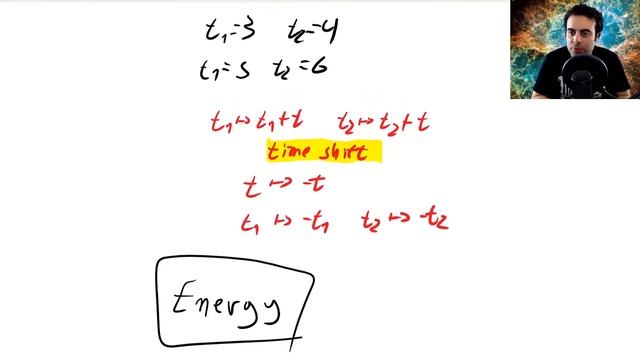 t₁=3 t₂=4
t₁=5 t₂=6
t₁↦t₁+t t₂↦t₂+t
time shift
t↦-t
t₁↦-t₁ t₂↦-t₂
Energy